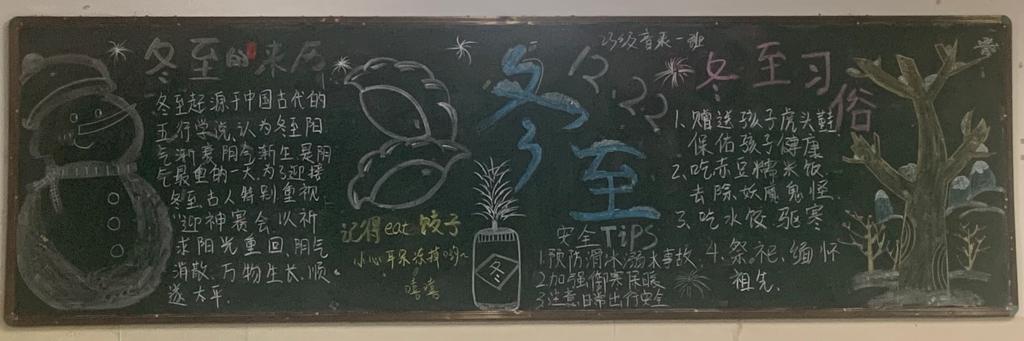 冬至的来历
冬至起源于中国古代的
五行学说,认为冬至阳
气渐衰阴气渐生是阴
气最重的一天,为了迎接
冬至古人特别重视
迎神赛会,以祈
求阳光重回,阴气
消散,万物生长,顺
遂太平.
记得eat饺子
小心耳朵冻掉哟~
嘻嘻
冬
23级音表一班
冬至
12.22
安全TiPS
1.预防滑冰溺水事故.
2.加强御寒保暖
3.注意日常出行安全
冬至习
俗
1.赠送孩子虎头鞋
保佑孩子健康
2.吃赤豆糯米饭
去除妖魔鬼怪.
3.吃水饺驱寒
4.祭祀,缅怀
祖先.